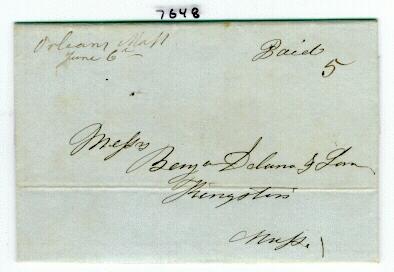 7648
Orleans Mass
June 6th
Paid
5
Messrs
Benja Delano & Son
Kingston
Mass.